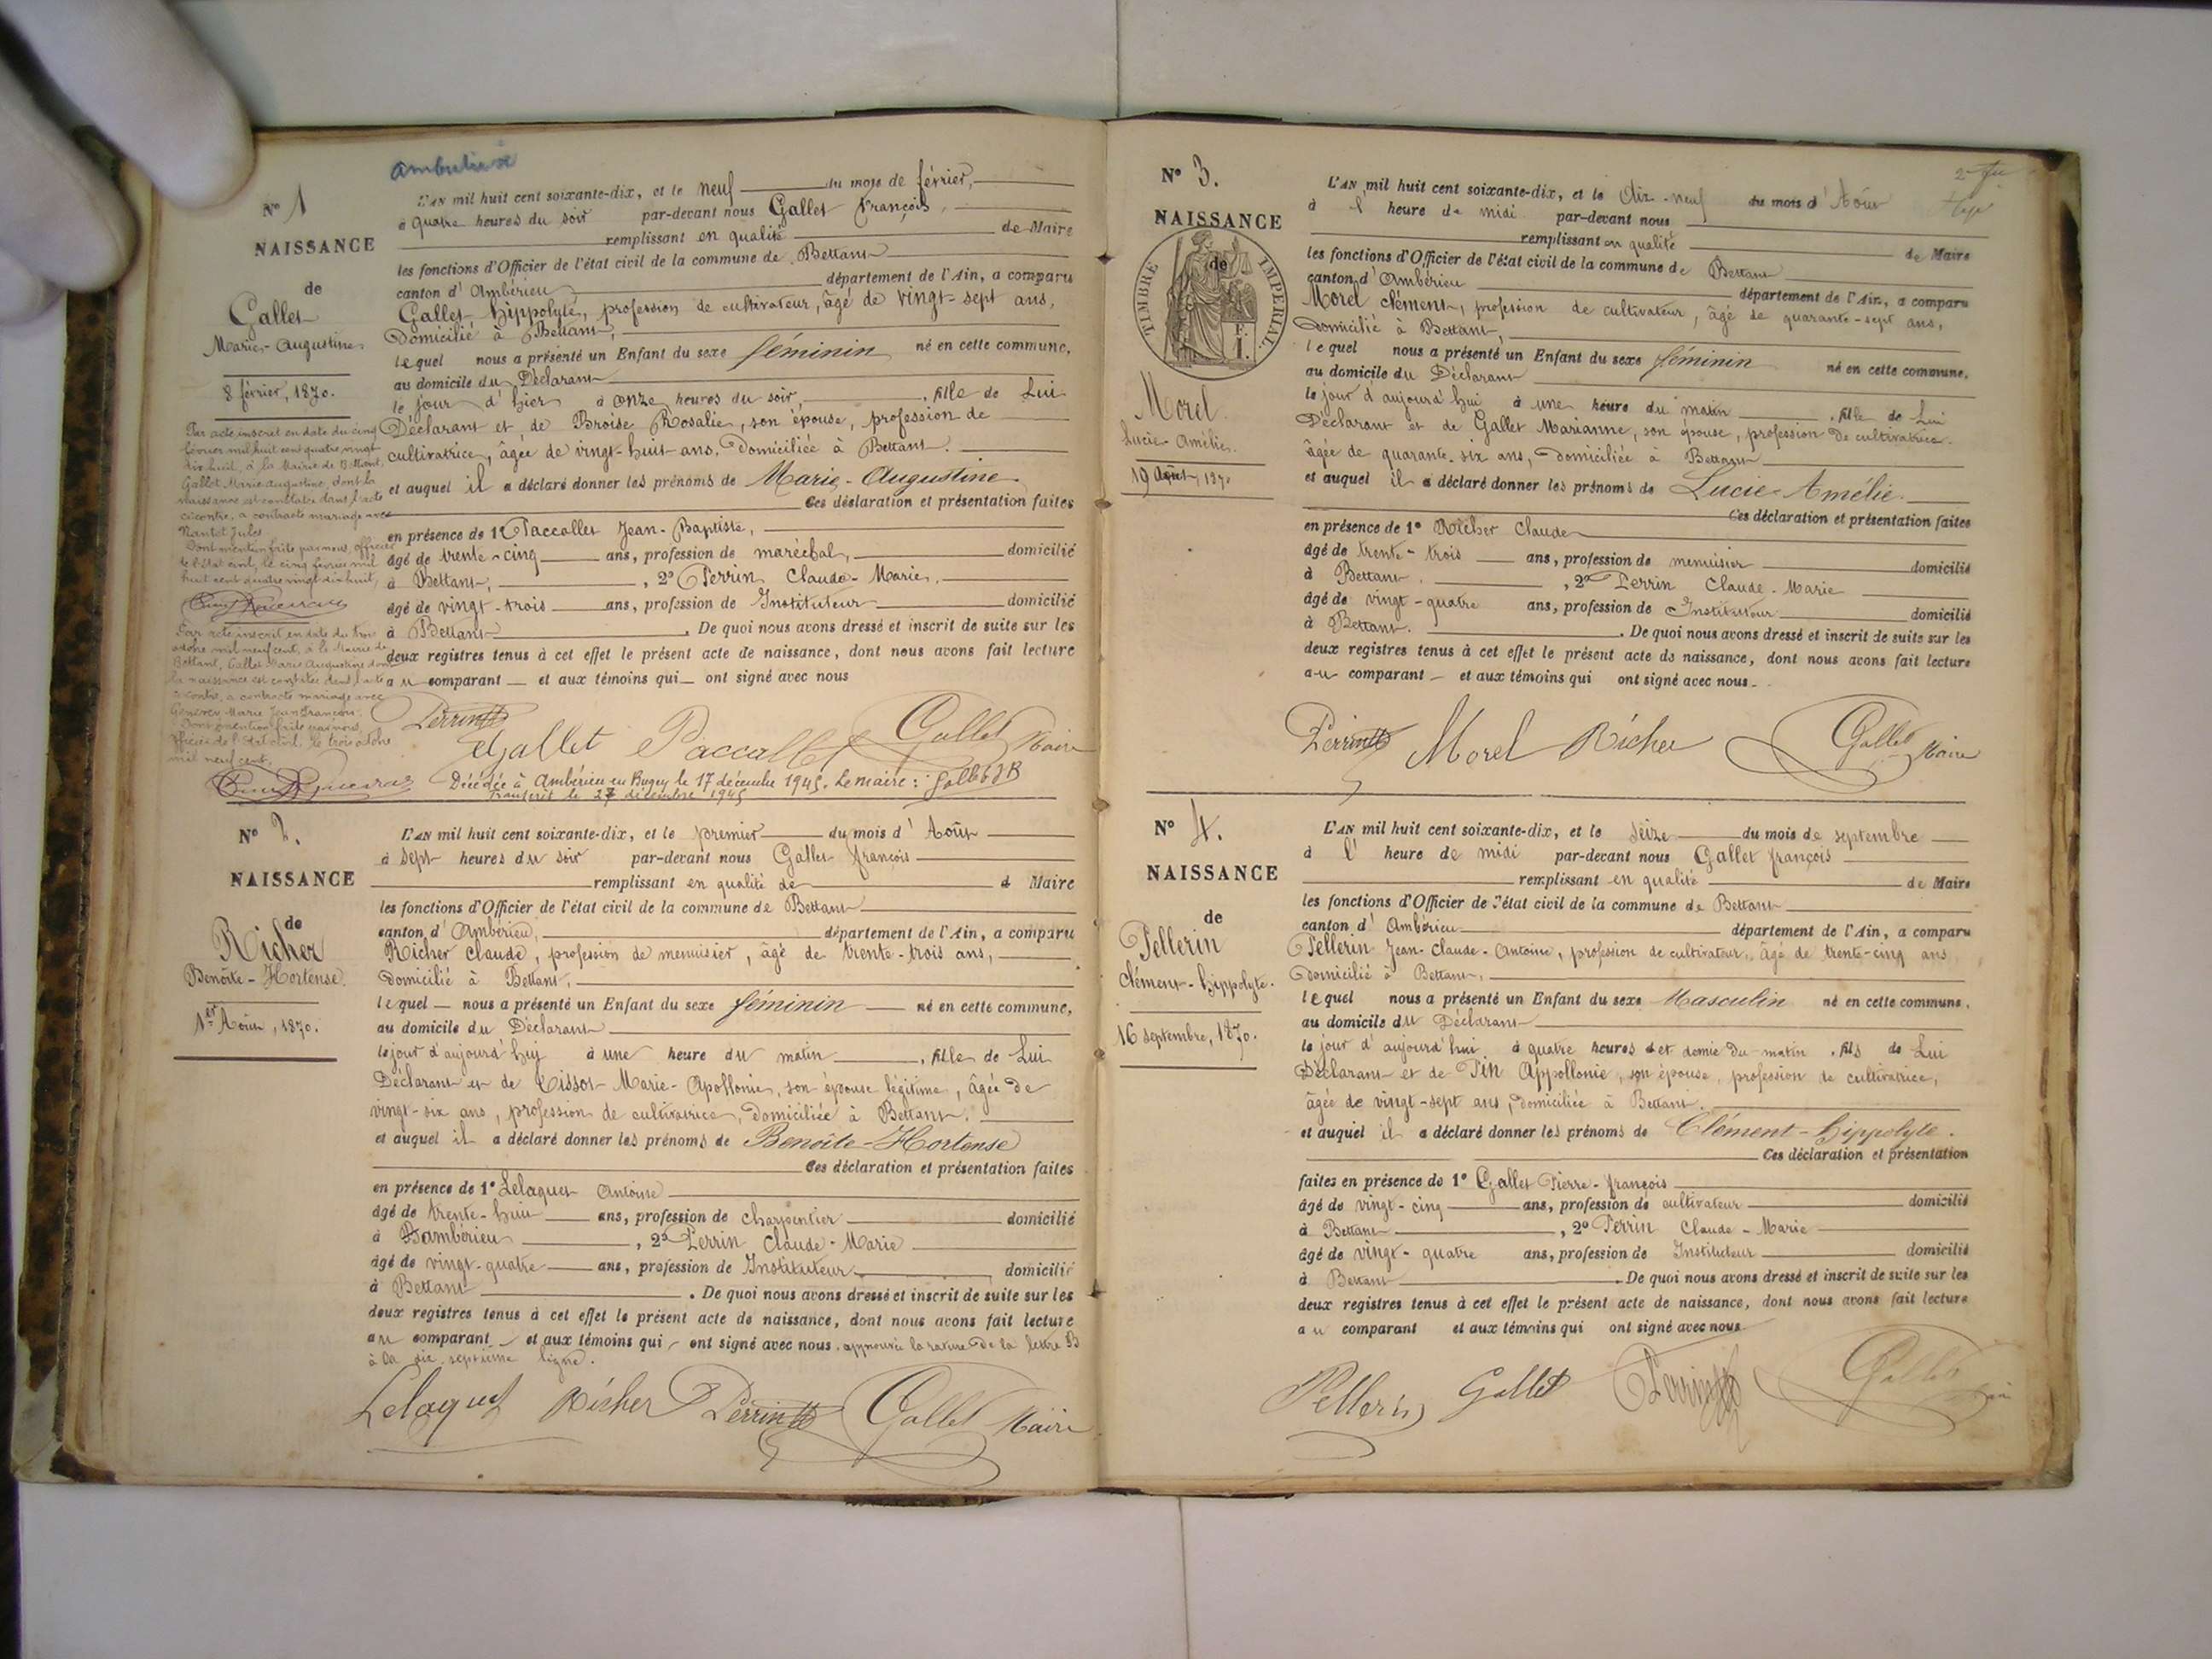 N° 1
NAISSANCE
de
Gallet
Marie-Augustine
8 février, 1870.
Par acte inscrit en date du cinq
février mil huit cent quatre vingt
dix huit, à la Mairie de
Gallet Marie Augustine, dont la
naissance est constatée dans l'acte
ci contre, a contracté mariage avec
Nantet Jules
Dont mention faite par nous, officier
de l'état civil, le cinq février mil
huit cent quatre vingt dix huit,
Par acte inscrit en date du trois
octobre mil neuf cent, à la Mairie de
Bettant, Gallet Marie Augustine dont
la naissance est constatée dans l'acte
ci contre, a contracté mariage avec
Marie Jean François.
Dont mention faite par nous,
officier de l'état civil, le trois octobre
mil neuf cent.
L'AN mil huit cent soixante-dix, et le neuf du mois de février,
à quatre heures du soir par-devant nous Gallet François,
remplissant en qualité de Maire
les fonctions d'Officier de l'état civil de la commune de Bettant
canton d'Ambérieu département de l'Ain, a comparu
Gallet Hippolyte, profession de cultivateur, âgé de vingt-sept ans,
Domicilié à Bettant,
lequel nous a présenté un Enfant du sexe féminin né en cette commune,
au domicile du Déclarant
le jour d'hier à onze heures du soir, fille de Lui
Déclarant et de Broise Rosalie, son épouse, profession de
cultivatrice, âgée de vingt-huit ans, Domiciliée à Bettant.
et auquel il a déclaré donner les prénoms de Marie-Augustine.
Ces déclaration et présentation faites
en présence de 1° Paccallet Jean-Baptiste,
âgé de trente-cinq ans, profession de maréchal, domicilié
à Bettant, , 2° Perrin Claude-Marie,
âgé de vingt-trois ans, profession de Instituteur domicilié
à Bettant . De quoi nous avons dressé et inscrit de suite sur les
deux registres tenus à cet effet le présent acte de naissance, dont nous avons fait lecture
au comparant et aux témoins qui ont signé avec nous
Perrin
Gallet Paccallet Gallet Maire
Décédée à Ambérieu en Bugey le 17 décembre 1945. Le maire : Gallet JB
Transcrit le 27 décembre 1945
N° 2.
NAISSANCE
de
Richer
Benoite-Hortense.
1er Août, 1870.
L'AN mil huit cent soixante-dix, et le premier du mois d'Août
à sept heures du soir par-devant nous Gallet françois
remplissant en qualité de d Maire
les fonctions d'Officier de l'état civil de la commune de Bettant
canton d'Ambérieu, département de l'Ain, a comparu
Richer Claude, profession de menuisier, âgé de trente-trois ans,
Domicilié à Bettant,
lequel nous a présenté un Enfant du sexe féminin né en cette commune,
au domicile du Déclarant
le jour d'aujourd'hui à une heure du matin , fille de Lui
Déclarant et de Cissot Marie-Apollonie, son épouse légitime, âgée de
vingt-six ans, profession de cultivatrice, Domiciliée à Bettant.
et auquel il a déclaré donner les prénoms de Benoite-Hortense
Ces déclaration et présentation faites
en présence de 1° Lelaquet Antoine
âgé de trente-huit ans, profession de charpentier domicilié
à Bambérieu , 2° Perrin Claude-Marie
âgé de vingt-quatre ans, profession de Instituteur domicilié
à Bettant . De quoi nous avons dressé et inscrit de suite sur les
deux registres tenus à cet effet le présent acte de naissance, dont nous avons fait lecture
au comparant et aux témoins qui ont signé avec nous. approuvée la rature de la lettre B
à la dix septième ligne.
Lelaquet Richer Perrin Gallet Maire
N° 3.
NAISSANCE
de
TIMBRE IMPERIAL
Morel.
Lucie-Amélie.
19 Août, 1870
L'AN mil huit cent soixante-dix, et le dix-neuf du mois d'Août
à l' heure de midi par-devant nous
remplissant en qualité de Maire
les fonctions d'Officier de l'état civil de la commune de Bettant
canton d'Ambérieu département de l'Ain, a comparu
Morel Clément, profession de cultivateur, âgé de quarante-sept ans,
Domicilié à Bettant,
lequel nous a présenté un Enfant du sexe féminin né en cette commune,
au domicile du Déclarant
le jour d'aujourd'hui à une heure du matin , fille de Lui
Déclarant et de Gallet Marianne, son épouse, profession de cultivatrice.
âgée de quarante-six ans, Domiciliée à Bettant
et auquel il a déclaré donner les prénoms de Lucie-Amélie.
Ces déclaration et présentation faites
en présence de 1° Richer Claude
âgé de trente-trois ans, profession de menuisier domicilié
à Bettant. , 2° Perrin Claude-Marie
âgé de vingt-quatre ans, profession de Instituteur domicilié
à Bettant. . De quoi nous avons dressé et inscrit de suite sur les
deux registres tenus à cet effet le présent acte de naissance, dont nous avons fait lecture
au comparant et aux témoins qui ont signé avec nous.
Perrin Morel Richer Gallet Maire
N° 4.
NAISSANCE
de
Pellerin
Clément-hippolyte.
16 septembre, 1870.
L'AN mil huit cent soixante-dix, et le seize du mois de septembre
à l' heure de midi par-devant nous Gallet françois
remplissant en qualité de Maire
les fonctions d'Officier de l'état civil de la commune de Bettant
canton d'Ambérieu département de l'Ain, a comparu
Pellerin Jean-Claude-Antoine, profession de cultivateur, âgé de trente-cinq ans
Domicilié à Bettant,
lequel nous a présenté un Enfant du sexe Masculin né en cette commune,
au domicile du Déclarant
le jour d'aujourd'hui à quatre heures et demie du matin , fils de Lui
Déclarant et de Pin Appollonie, son épouse, profession de cultivatrice,
âgée de vingt-sept ans, Domiciliée à Bettant.
et auquel il a déclaré donner les prénoms de Clément-hippolyte.
Ces déclaration et présentation
faites en présence de 1° Gallet Pierre-françois
âgé de vingt-cinq ans, profession de cultivateur domicilié
à Bettant , 2° Perrin Claude-Marie
âgé de vingt-quatre ans, profession de Instituteur domicilié
à Bettant . De quoi nous avons dressé et inscrit de suite sur les
deux registres tenus à cet effet le présent acte de naissance, dont nous avons fait lecture
au comparant et aux témoins qui ont signé avec nous
Pellerin Gallet Perrin Gallet